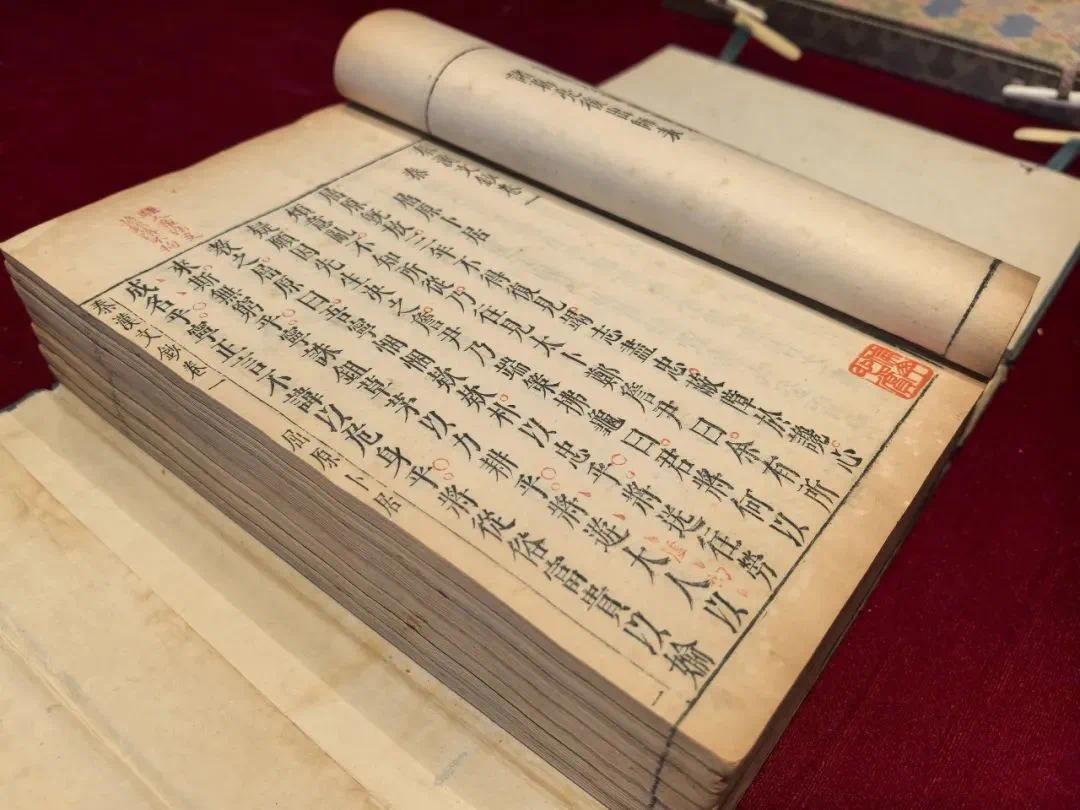 諸葛亮後出師表
秦漢文鈔卷一
秦
屈原卜居
屈原既放三年不得復見竭志盡忠蔽障於讒心
煩意亂不知所從乃往見太卜鄭詹尹曰余有所
疑願因先生決之詹尹乃端策拂龜曰君將何以
教之屈原曰吾寧悃悃欵欵朴以忠乎將送往勞
來斯無窮乎寧誅鉏草茅以力耕乎將遊大人以
成名乎寧正言不諱以危身乎將從俗富貴以媮
秦漢文鈔卷一 屈原卜居 一